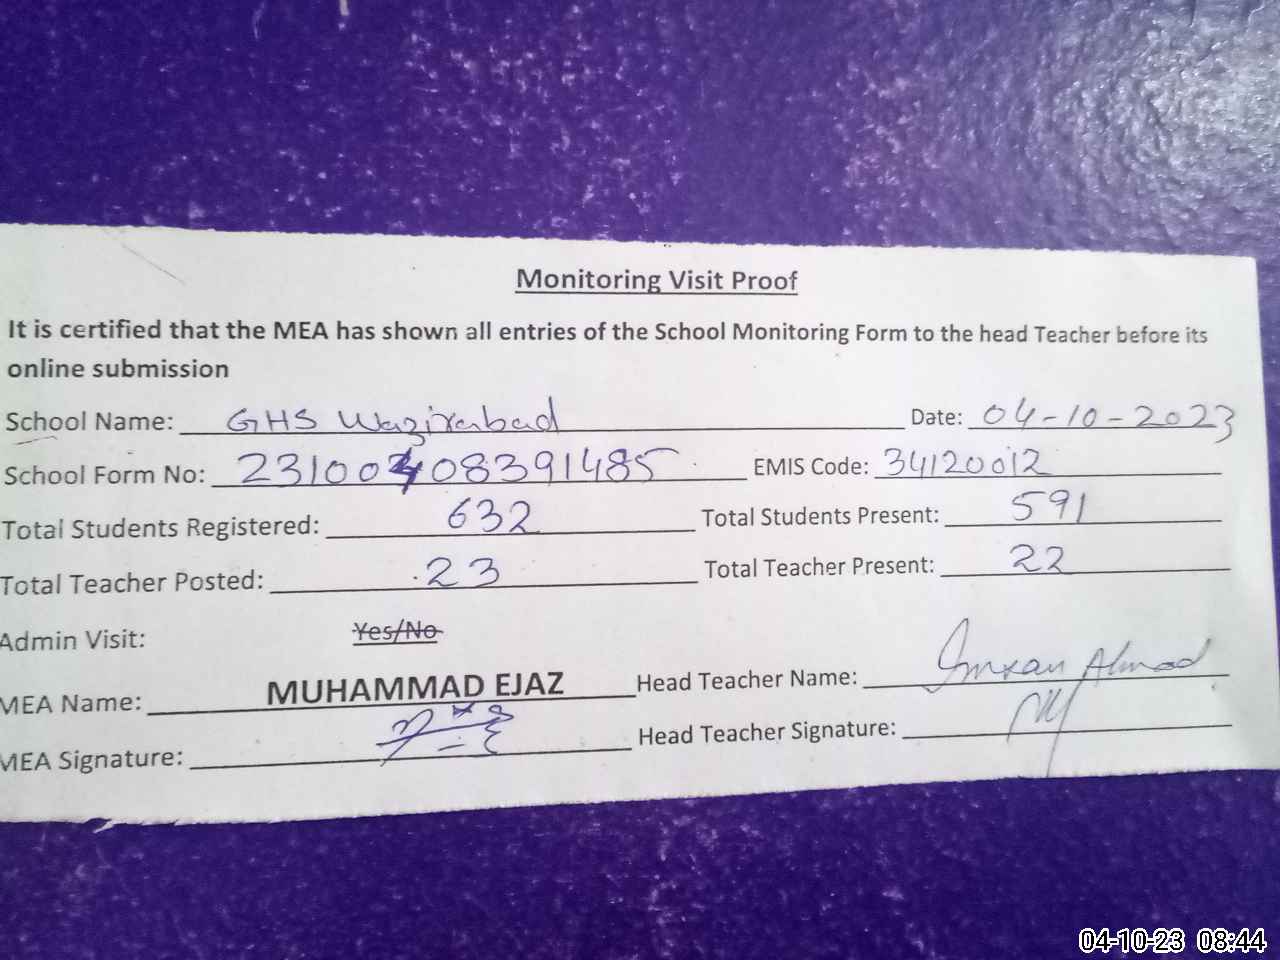 Monitoring Visit Proof
It is certified that the MEA has shown all entries of the School Monitoring Form to the head Teacher before its
online submission
School Name: GHS Wazirabad Date: 04-10-2023
School Form No: 23100408391485 EMIS Code: 34120012
Total Students Registered: 632 Total Students Present: 591
Total Teacher Posted: 23 Total Teacher Present: 22
Admin Visit: Yes/No
MEA Name: MUHAMMAD EJAZ Head Teacher Name: Imran Ahmad
MEA Signature: Head Teacher Signature:
04-10-23 08:44